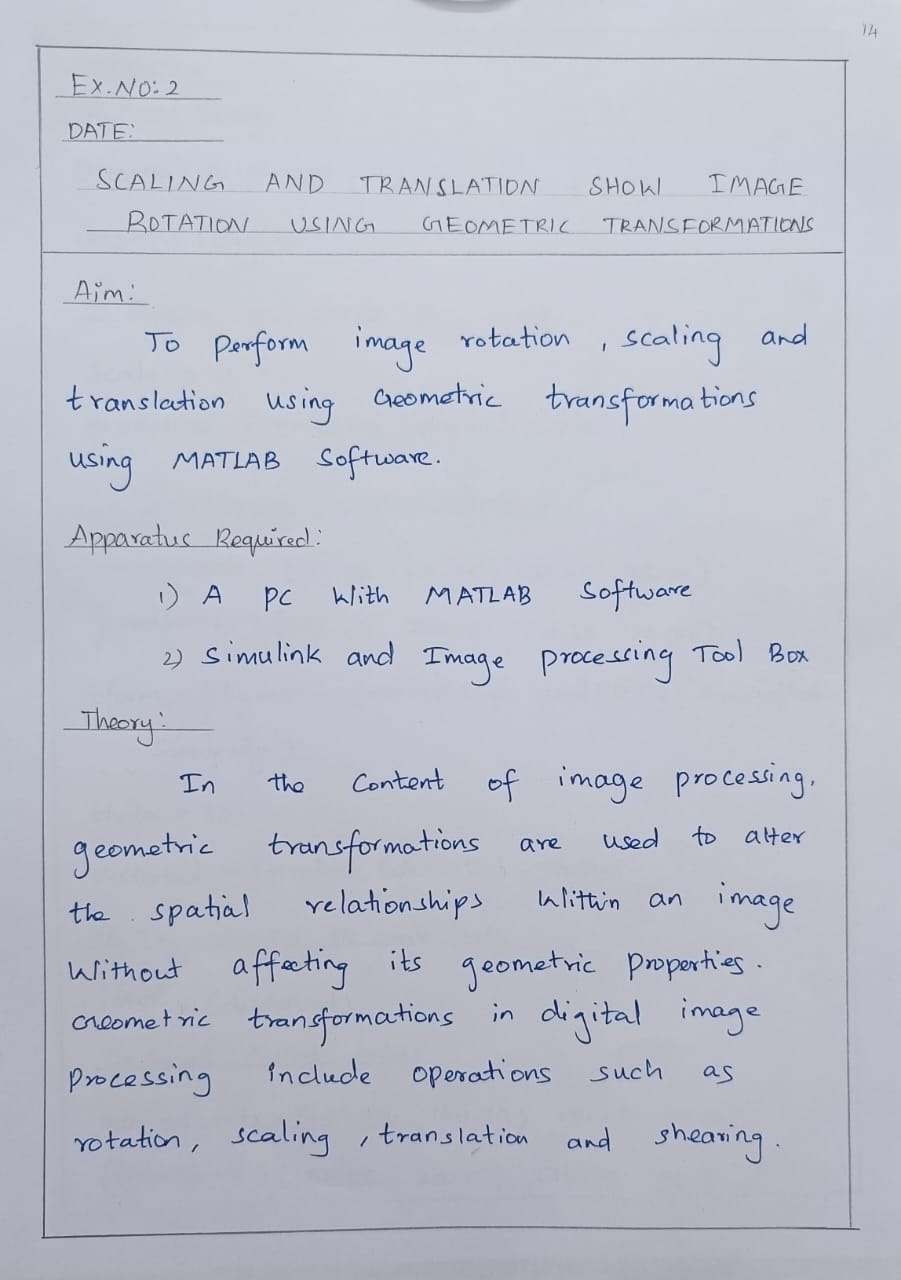 14
EX.NO: 2
DATE:
SCALING AND TRANSLATION SHOW IMAGE
ROTATION USING GEOMETRIC TRANSFORMATIONS
Aim:
To perform image rotation, scaling and
translation using Geometric transformations
using MATLAB Software.
Apparatus Required:
1) A PC With MATLAB Software
2) Simulink and Image processing Tool Box
Theory:
In the Content of image processing,
geometric transformations are used to alter
the spatial relationships Within an image
Without affecting its geometric properties.
Geometric transformations in digital image
processing include operations such as
rotation, scaling, translation and shearing.